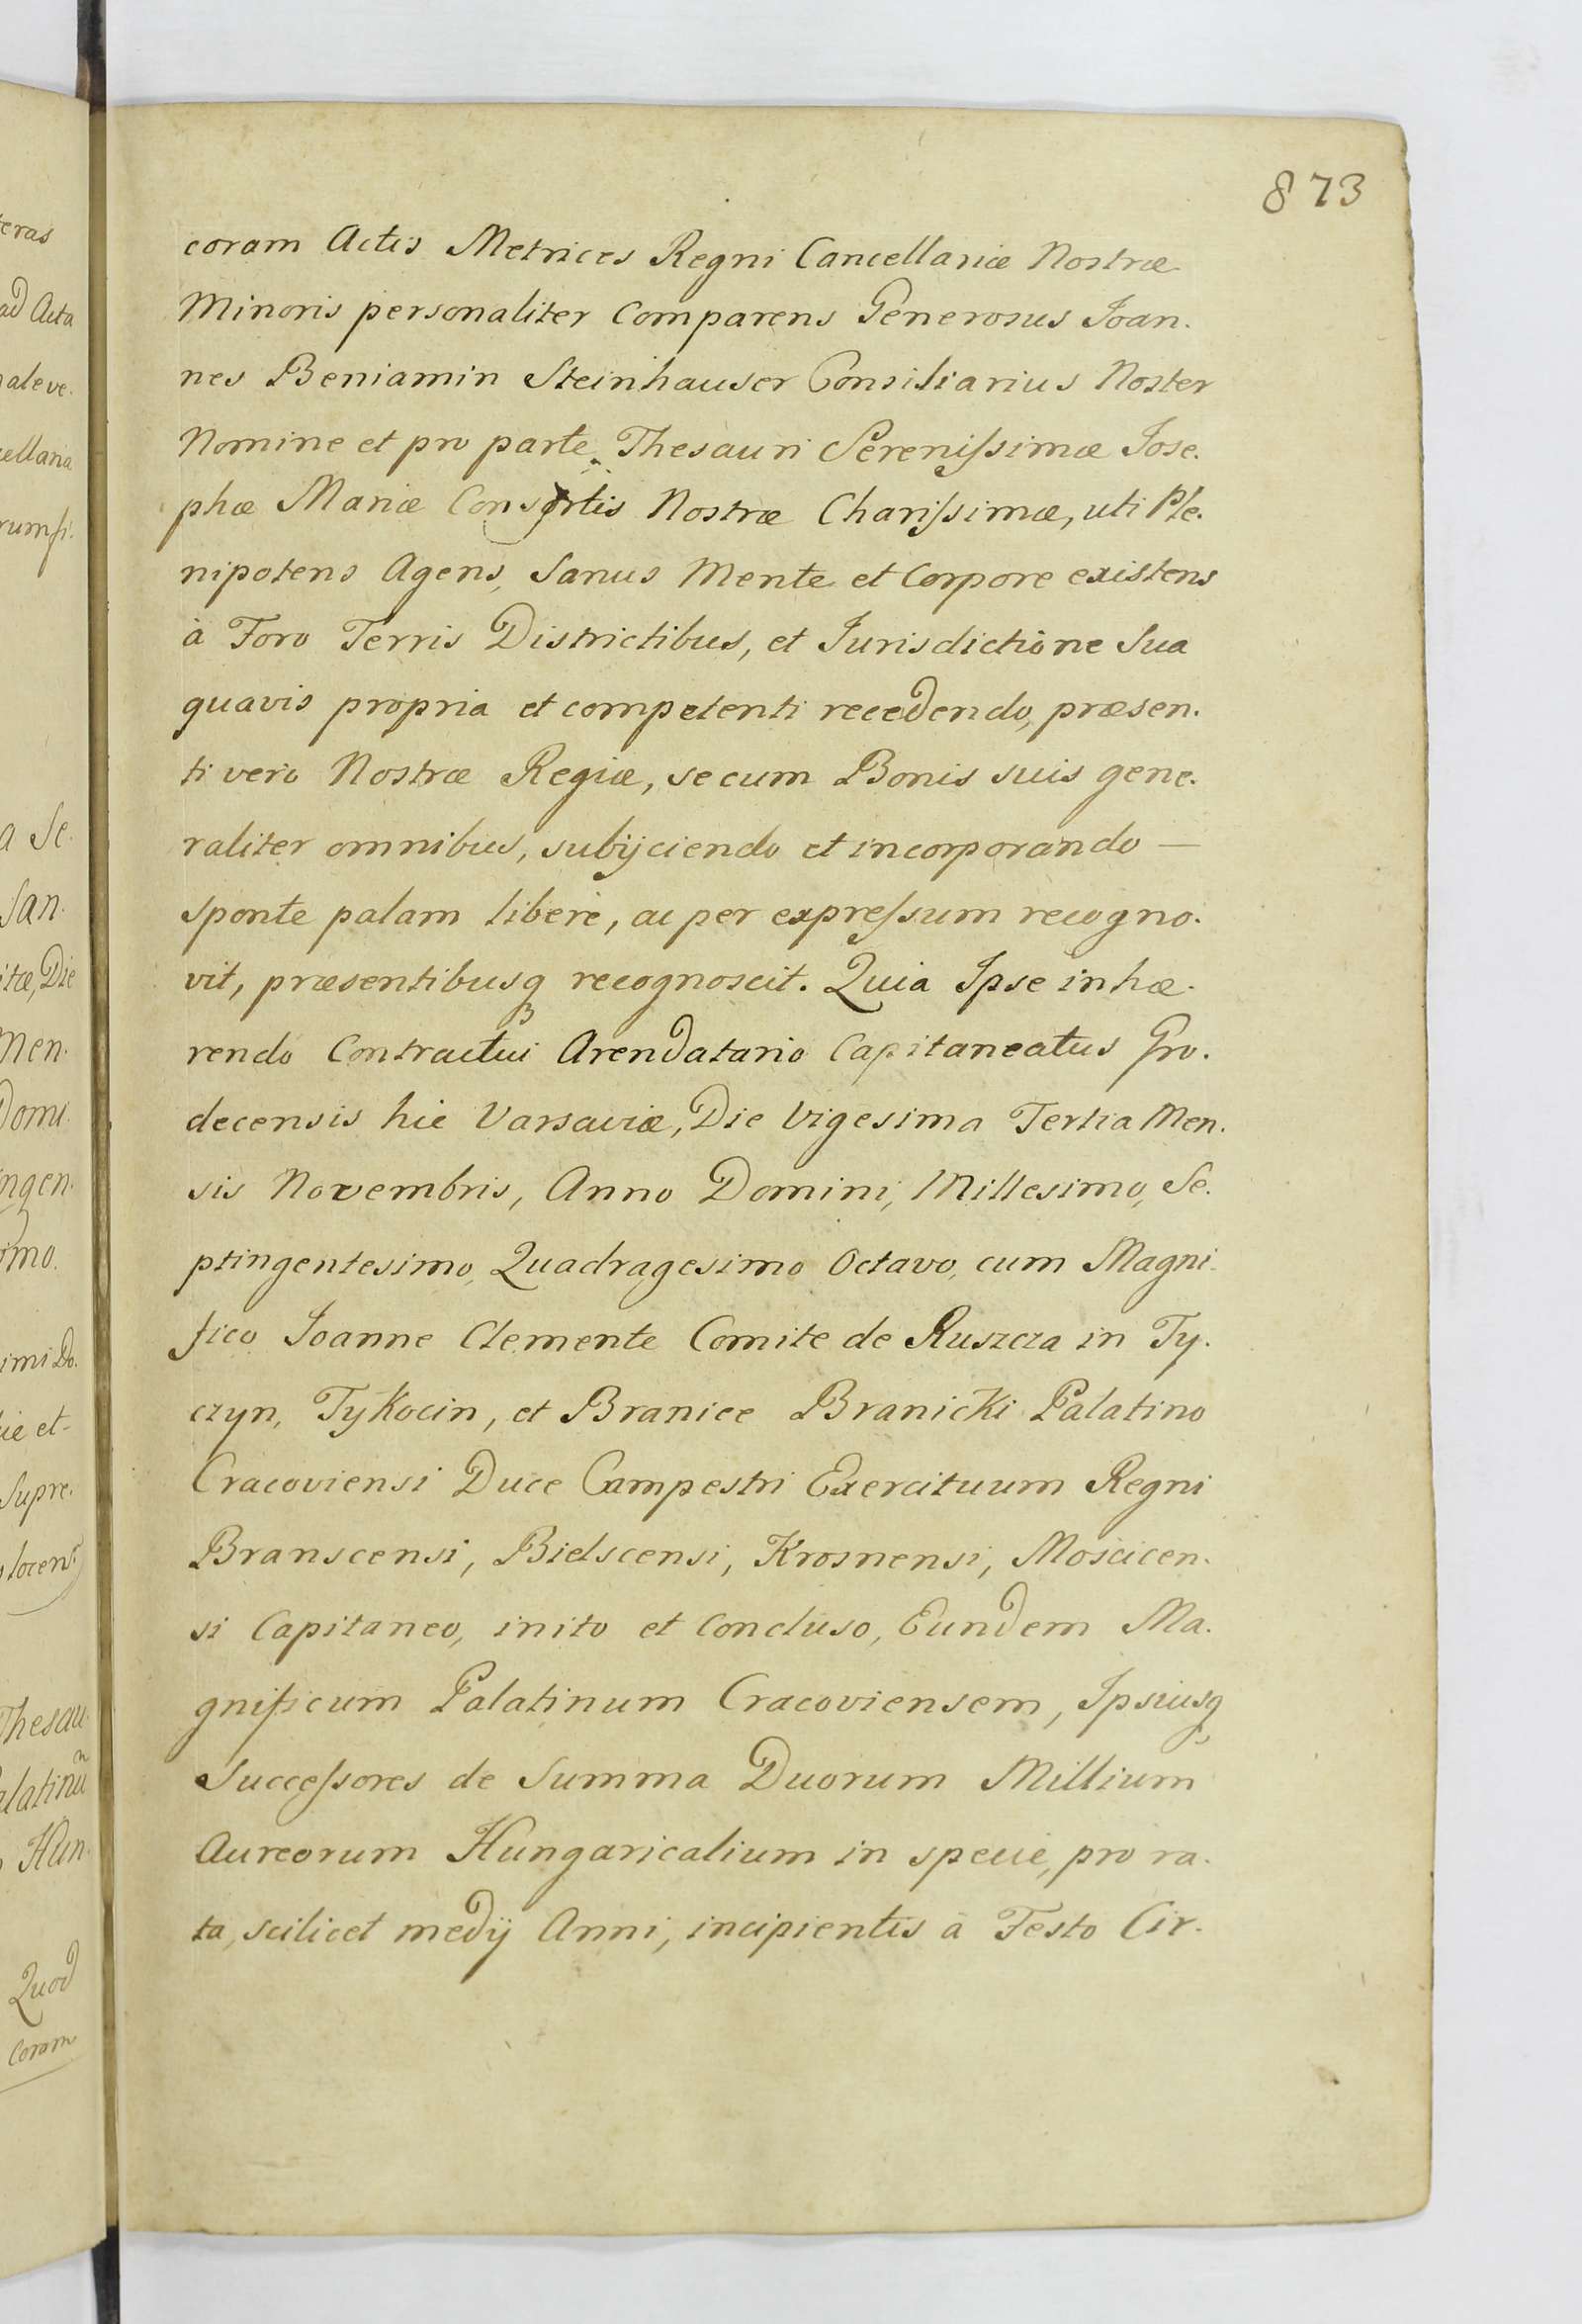 873
coram Actis Metrices Regni Cancellariæ Nostræ
Minoris personaliter Comparens Generosus Joan.
nes Beniamin Steinhauser Consiliarius Noster
Nomine et pro parte Thesauri Serenissimæ Jose.
phæ Mariæ Consortis Nostræ Charissimæ, uti Ple.
nipotens Agens, Sanus Mente et Corpore existens
à Foro Terris Districtibus, et Jurisdictione Sua
quavis propria et competenti recedendo, præsen.
ti vero Nostræ Regiæ, se cum Bonis suis gene.
raliter omnibus, subijciendo et incorporando —
sponte palam libere, ac per expressum recogno.
vit, præsentibusq recognoscit. Quia Ipse inhæ.
rendo Contractui Arendatario Capitaneatus Gro.
decensis hic Varsaviæ, Die Vigesima Tertia Men.
sis Novembris, Anno Domini, Millesimo, Se.
ptingentesimo, Quadragesimo Octavo, cum Magni.
fico Joanne Clemente Comite de Ruszcza in Ty.
czyn, Tykocin, et Branice Branicki Palatino
Cracoviensi Duce Campestri Exercituum Regni
Branscensi, Bielscensi, Krosnensi, Moscicen.
si Capitaneo, inito et Concluso, Eundem Ma.
gnificum Palatinum Cracoviensem, Ipsiusq
Successores de Summa Duorum Millium
Aureorum Hungaricalium in specie, pro ra.
ta, scilicet medij Anni, incipientis à Festo Cir.
teras
ad Acta
cellaria
a Se.
San.
itæ, Die
Men.
Domi.
ingen.
imo.
imi Do.
ie et
Supre.
Thesau.
alatinū
Hun.
Quod
Coram